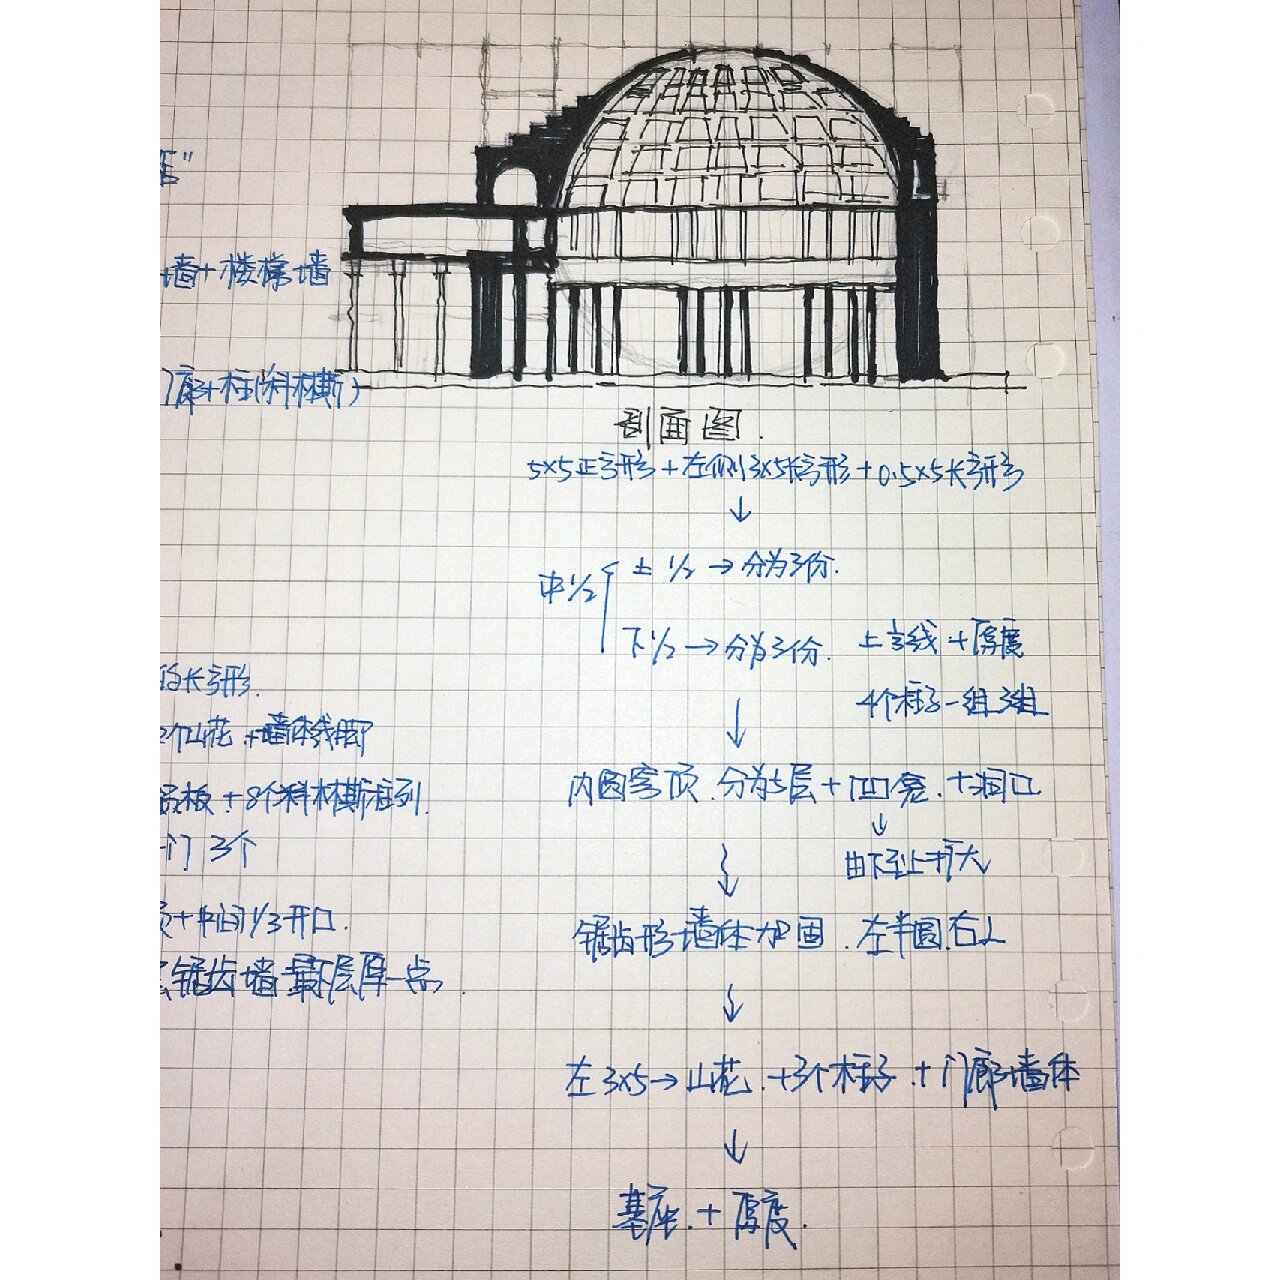 墙+楼梯墙
门廊+柱(科林斯)
剖面图.
5×5正方形+左侧3×5长方形+0.5×5长方形
↓
中1/2
上1/2→分为3份.
下1/2→分为3份.
上方线+厚度
4个柱子一组 3组
↓
的长方形.
个山花+墙体线脚
内圆穹顶.分为5层+凹龛.+洞口
板+8个科林斯柱列.
↓
门3个
由下至上扩大
↓
+中间1/3开口.
锯齿形墙体加固.左半圆.右上
锯齿墙 最下层厚一点.
↓
左3×5→山花.+3个柱子.+门廊墙体
↓
基座.+厚度.